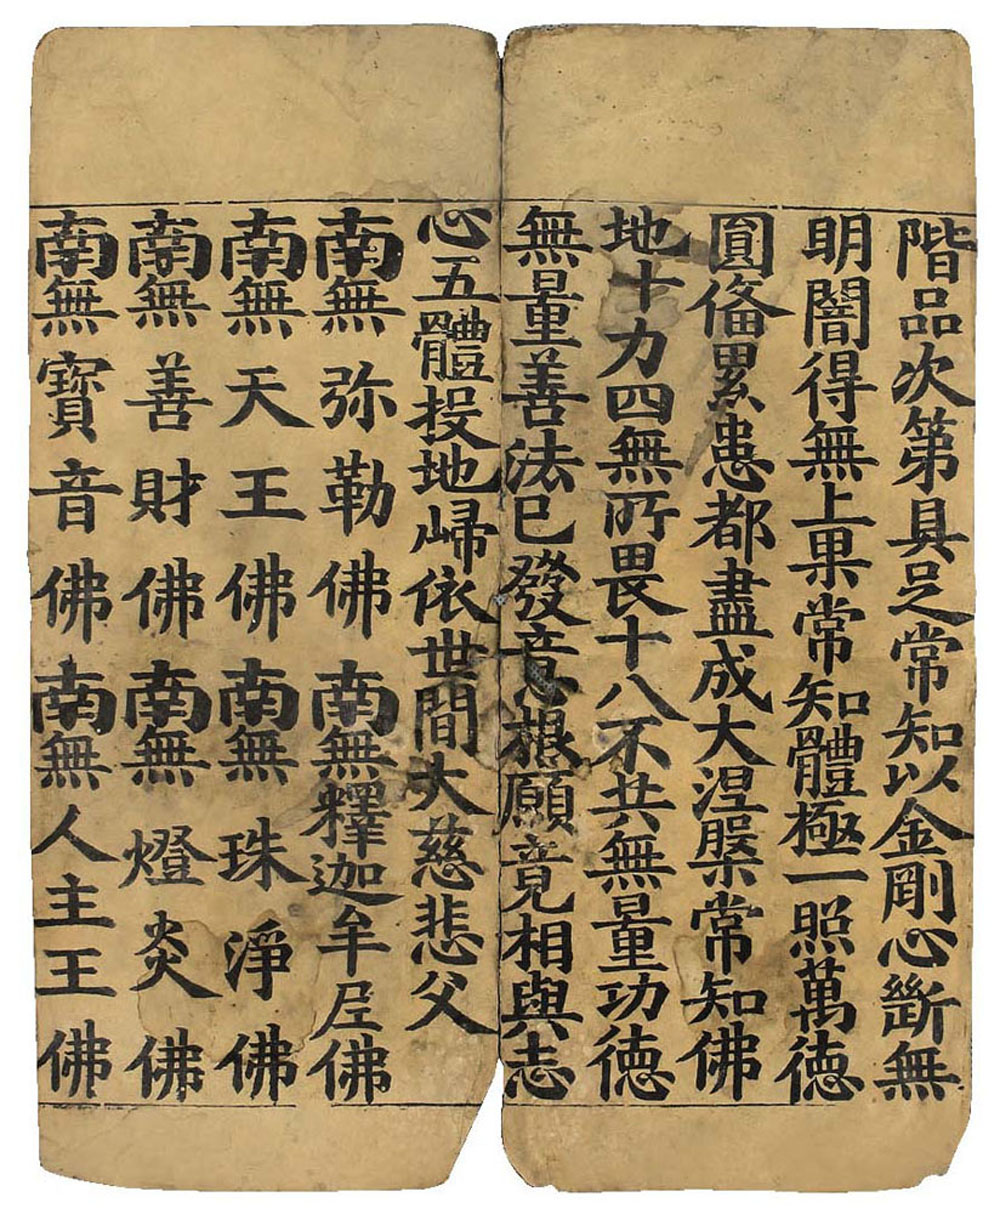 階品次第具足常知以金剛心斷無
明闇得無上果常知體極一照萬徳
圓俻累患都盡成大涅槃常知佛
地十力四無所畏十八不共無量功徳
無量善法已發意根願竟相與志
心五體投地歸依世間大慈悲父
南無弥勒佛南無釋迦牟尼佛
南無天王佛南無珠淨佛
南無善財佛南無燈炎佛
南無寶音佛南無人主王佛